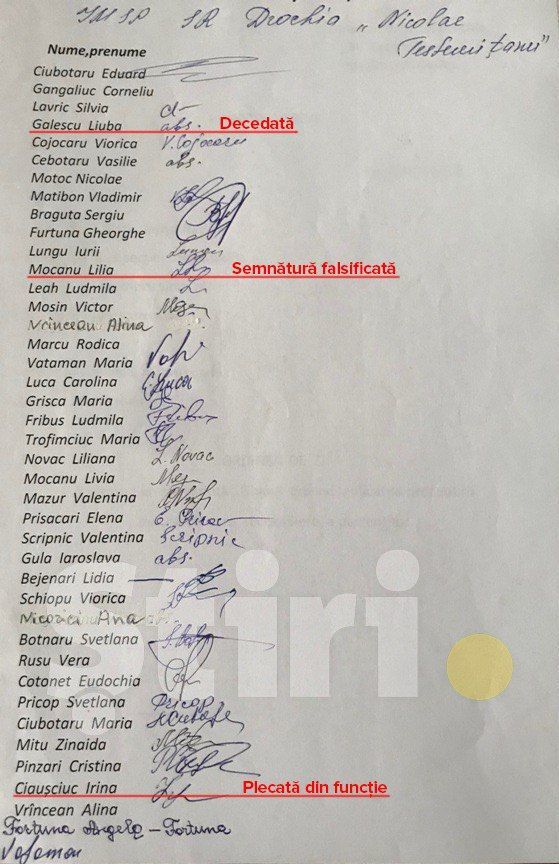 IMSP SR Drochia „Nicolae
Testemițanu”
Nume,prenume
Ciubotaru Eduard
Gangaliuc Corneliu
Lavric Silvia
Galescu Liuba abs. Decedată
Cojocaru Viorica V. Cojocaru
Cebotaru Vasilie abs.
Motoc Nicolae
Matibon Vladimir
Braguta Sergiu
Furtuna Gheorghe
Lungu Iurii
Mocanu Lilia Semnătură falsificată
Leah Ludmila
Mosin Victor
Vrincean Alina
Marcu Rodica
Vataman Maria
Luca Carolina
Grisca Maria
Fribus Ludmila
Trofimciuc Maria
Novac Liliana L. Novac
Mocanu Livia
Mazur Valentina
Prisacari Elena
Scripnic Valentina Scripnic
Gula Iaroslava abs.
Bejenari Lidia
Schiopu Viorica
Ana
Botnaru Svetlana
Rusu Vera
Cotonet Eudochia
Pricop Svetlana Pricop
Ciubotaru Maria
Mitu Zinaida
Pinzari Cristina
Ciaușciuc Irina Plecată din funcție
Vrîncean Alina
Fortuna Angela – Fortuna
Știri